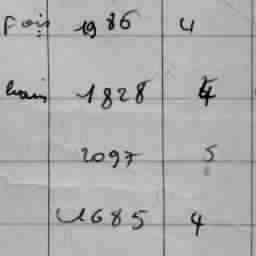 Fois 1986 4
1828 4
2097 5
1685 4